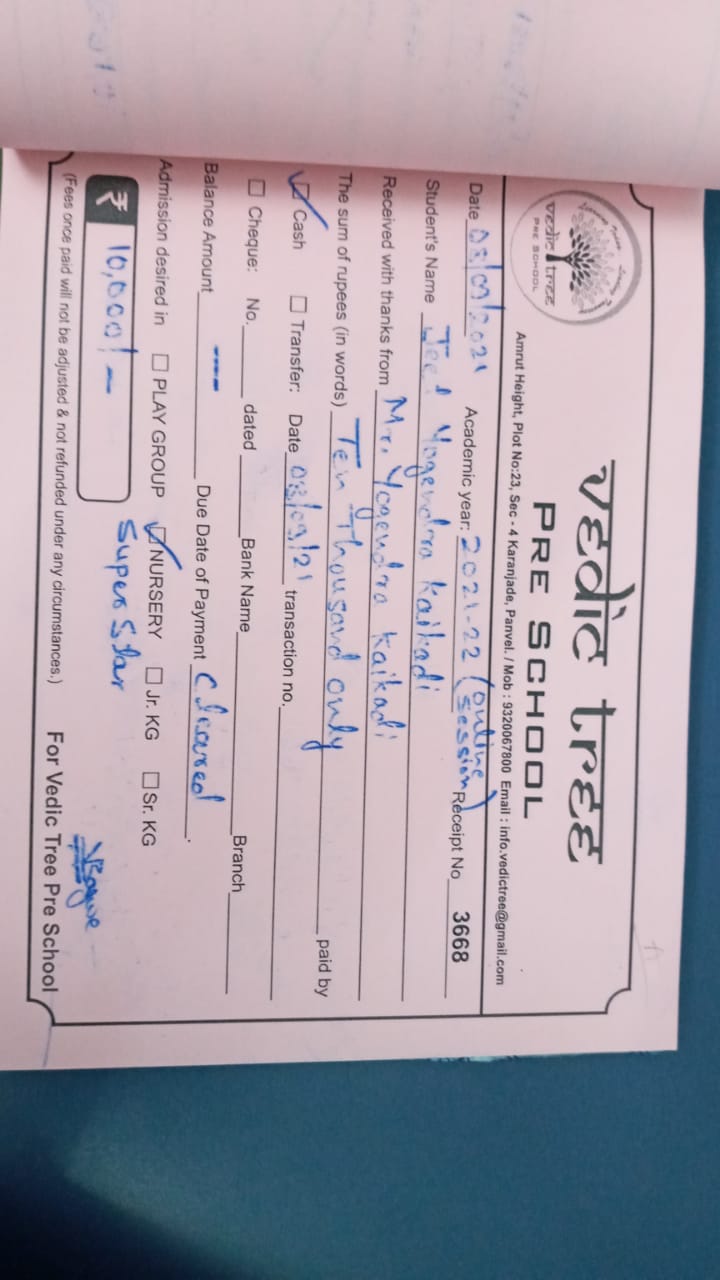 vedic tree
PRE SCHOOL
vedic tree
PRE SCHOOL
Amrut Height, Plot No:23, Sec - 4 Karanjade, Panvel. / Mob : 9320067800 Email : info.vedictree@gmail.com
Date 08/09/2021 Academic year: 2021-22 (online session) Receipt No 3668
Student's Name Jeel Yogendra Kaikadi
Received with thanks from Mr. Yogendra Kaikadi
The sum of rupees (in words) Ten Thousand only paid by
☑ Cash ☐ Transfer: Date 08/09/21 transaction no.
☐ Cheque: No. dated Bank Name Branch
Balance Amount ---- Due Date of Payment Cleared.
Admission desired in ☐ PLAY GROUP ☑ NURSERY ☐ Jr. KG ☐ Sr. KG
₹ 10,000/- Super Star
(Fees once paid will not be adjusted & not refunded under any circumstances.) For Vedic Tree Pre School